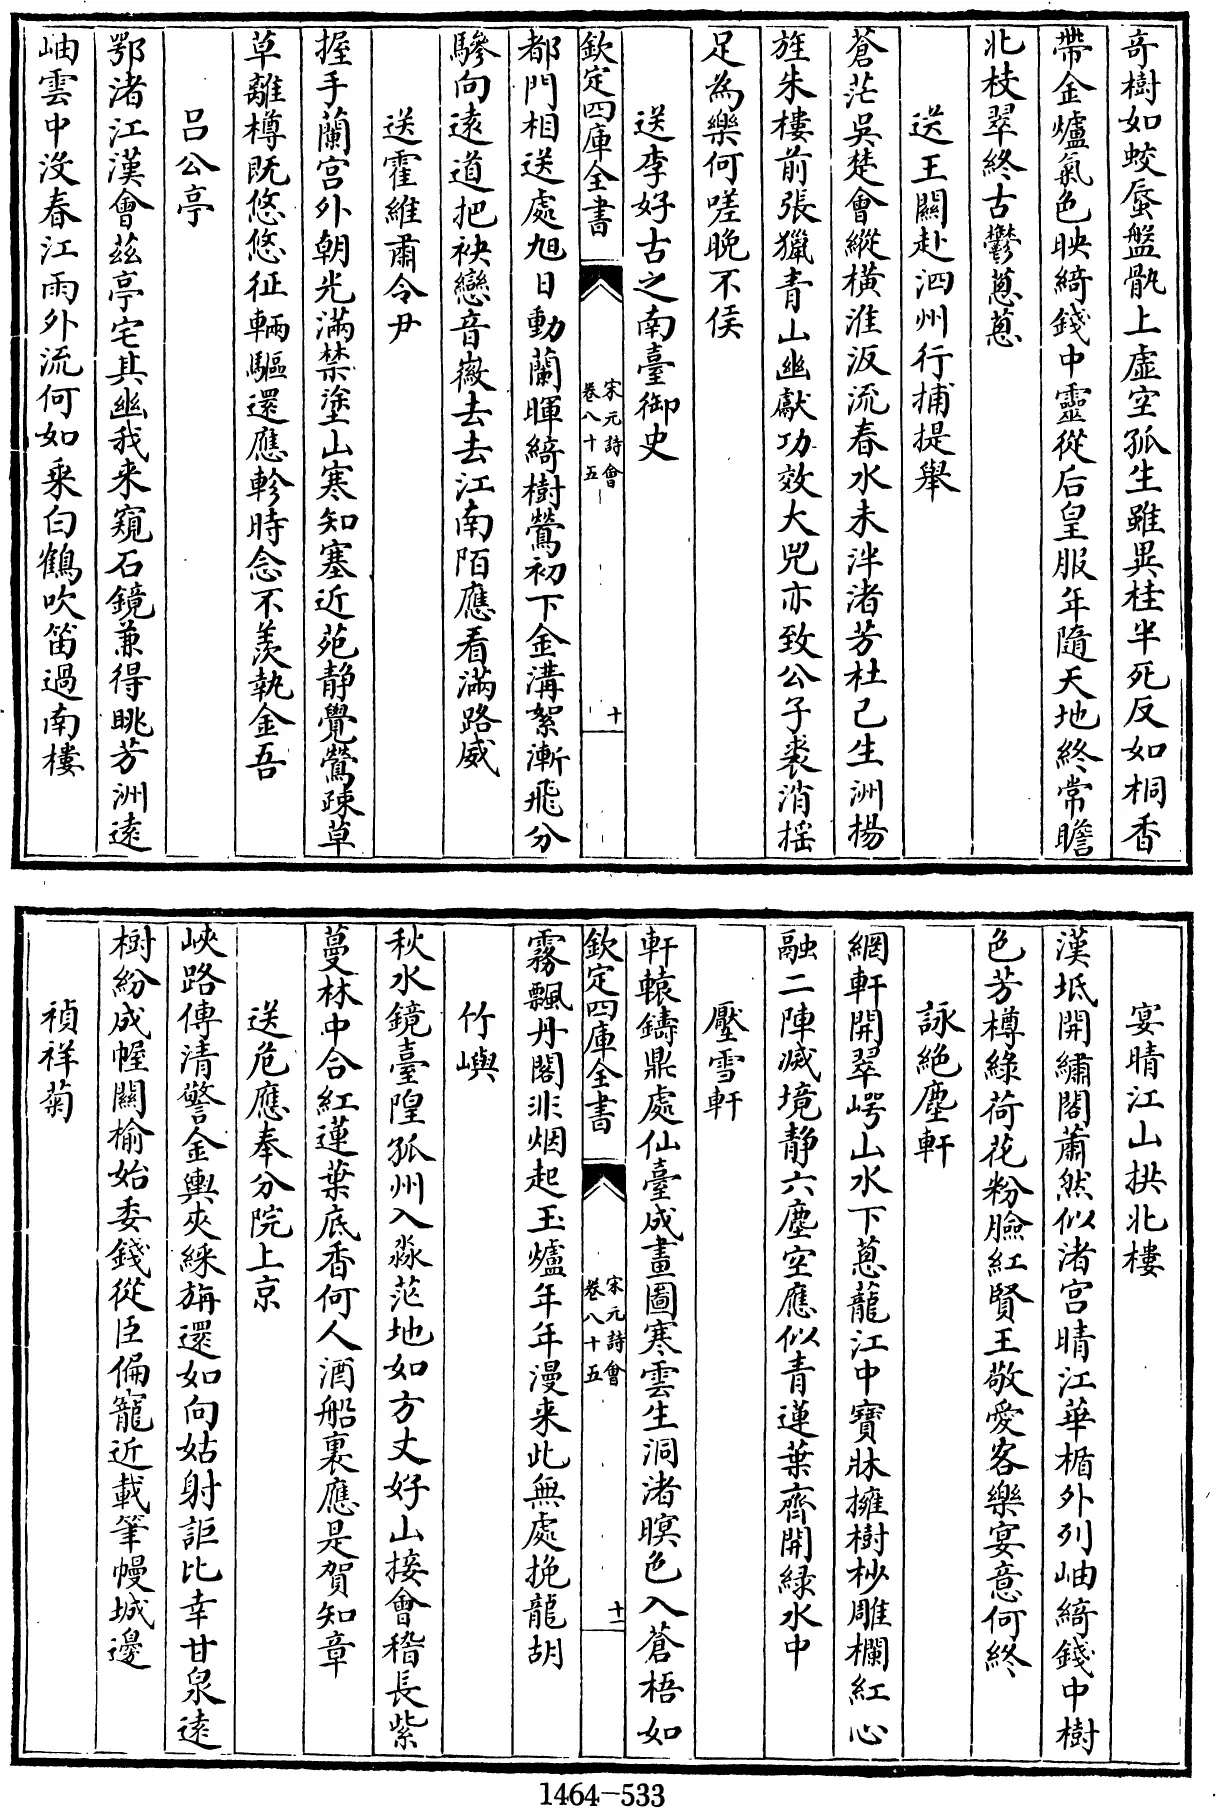 奇樹如蛟蜃盤骩上虛空孤生雖異桂半死反如桐香
帶金爐氣色映綺錢中靈從后皇服年隨天地終常瞻
北枝翠終古鬱蔥蔥
送王闗赴泗州行捕提舉
蒼茫吳楚會縱橫淮汳流春水未泮渚芳杜已生洲揚
旌朱樓前張獵青山幽獻功效大兕亦致公子裘消搖
足為樂何嗟晚不侯
送李好古之南臺御史
欽定四庫全書
宋元詩會
卷八十五
十
都門相送處旭日動蘭暉綺樹鶯初下金溝絮漸飛分
驂向遠道把袂戀音徽去去江南陌應看滿路威
送霍維肅令尹
握手蘭宮外朝光滿禁塗山寒知塞近苑靜覺鶯疎草
草離樽既悠悠征輛驅還應軫時念不羨執金吾
呂公亭
鄂渚江漢會茲亭宅其幽我来窺石鏡兼得眺芳洲遠
岫雲中沒春江雨外流何如乘白鶴吹笛過南樓
宴晴江山拱北樓
漢坻開繡閣蕭然似渚宮晴江華楯外列岫綺錢中樹
色芳樽綠荷花粉臉紅賢王敬愛客樂宴意何終
詠絕塵軒
網軒開翠崿山水下蔥蘢江中寶牀擁樹杪雕欄紅心
融二陣滅境靜六塵空應似青蓮葉齊開緑水中
壓雪軒
軒轅鑄鼎處仙臺成畫圖寒雲生洞渚暝色入蒼梧如
欽定四庫全書
宋元詩會
卷八十五
十一
霧飄丹閣非烟起玉爐年年漫来此無處挽龍胡
竹嶼
秋水鏡臺隍孤州入淼茫地如方丈好山接會稽長紫
蔓林中合紅蓮葉底香何人酒船裏應是賀知章
送危應奉分院上京
峽路傳清警金輿夾綵旃還如向姑射詎比幸甘泉遠
樹紛成幄闗榆始委錢從臣偏寵近載筆幔城邊
禎祥菊
1464-533